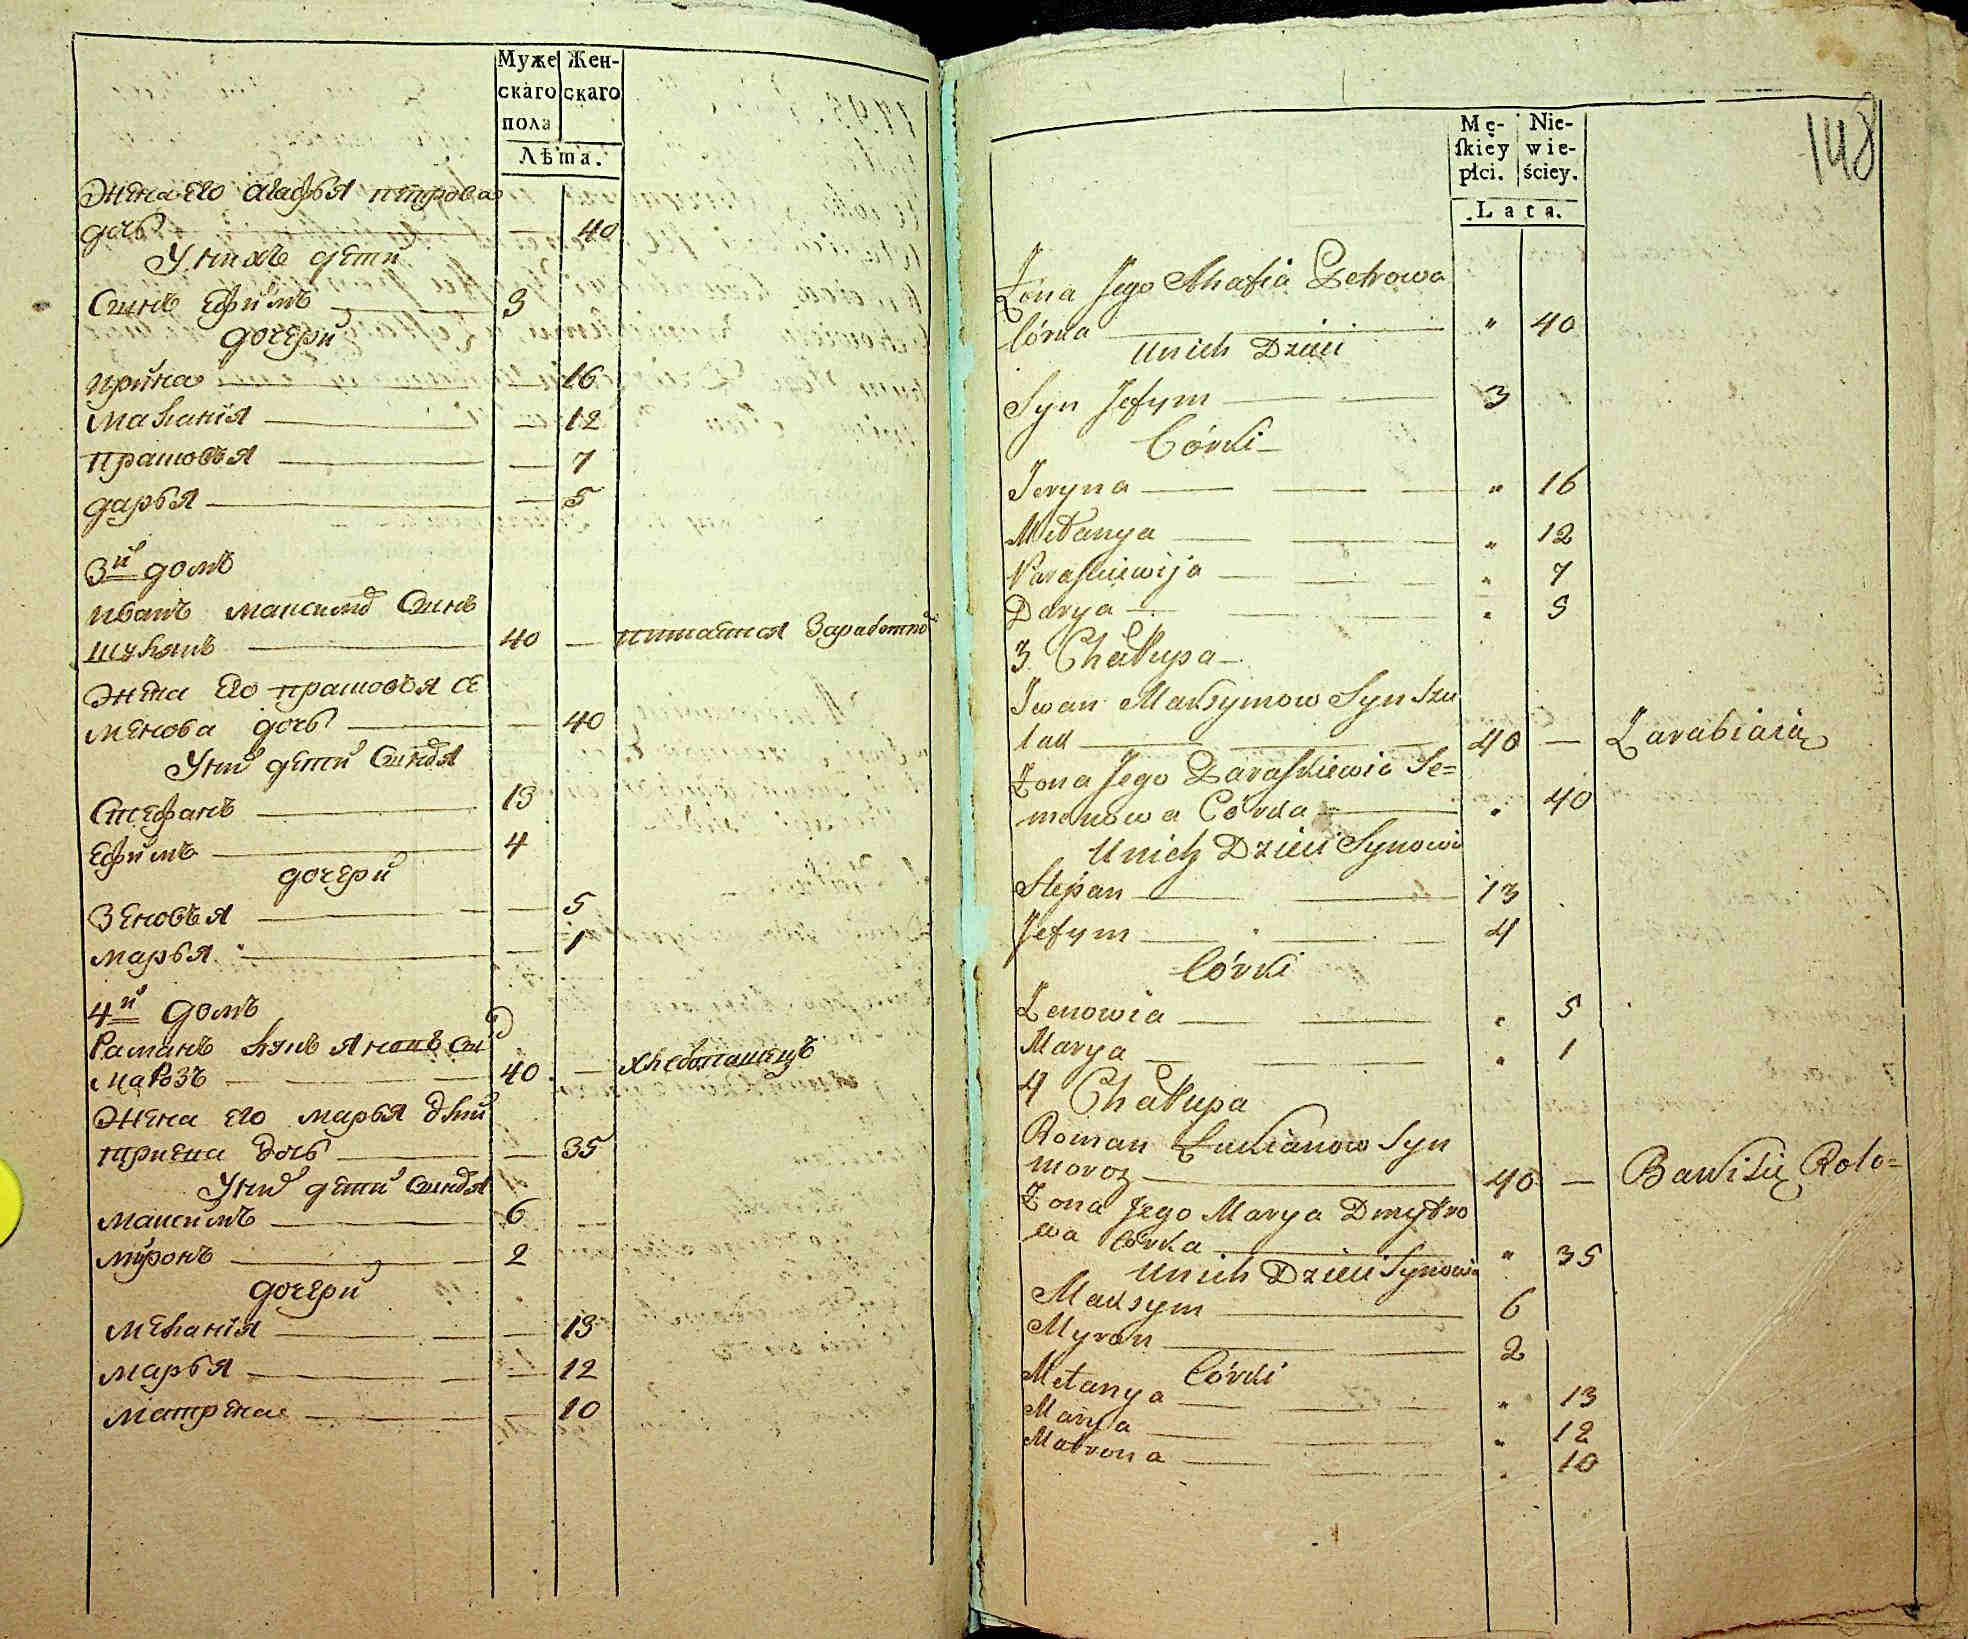 Муже Жен-
скаго скаго
пола
Лѣта.
Жена его Агафья петрова
дочь — 40
У нихъ дети
Синъ Ефимъ — 3
дочери
ирина — 16
Малания — 12
прасковья — 7
дарья — 5
3й домъ
иванъ максимо Синъ
шулякъ — 40 — питаится Заработко
Жена его прасковья се
менова дочь — 40
У ни дети Синовя
Степанъ — 13
Ефимъ — 4
дочери
Зеновья — 5
марья — 1
4й домъ
Раманъ Син
марозъ — 40 — хлебопашецъ
Жена его марья дми
триева дочь — 35
У ни дети Синовя
максимъ — 6
миронъ — 2
дочери
мелания — 13
марья — 12
матрена — 10
148
Mę- Nie-
ſkiey wie-
płci. ściey.
Lata.
Żona Jego Ahafia Petrowa
Córka — " 40
Unich Dzieci
Syn Jefym — 3
Córki
Jeryna — " 16
Mełanya — " 12
Paraskiewija — " 7
Darya — " 5
3 Chałupa
Iwan Maksymow Syn Szu
lak — 40 — Zarabiaią
Żona Jego Paraskiewia Se=
menowa Córka — " 40
Unich Dzieci Synowie
Stepan — 13
Jefym — 4
Córki
Zenowia — " 5
Marya — " 1
4 Chałupa
Roman Łukianow Syn
moroz — 40 — Bawi się Rolo=
Żona Jego Marya Dmytro
wa Córka — " 35
Unich Dzieci Synowie
Maksym — 6
Myron — 2
Córki
Mełanya — " 13
Marya — " 12
Matrona — " 10